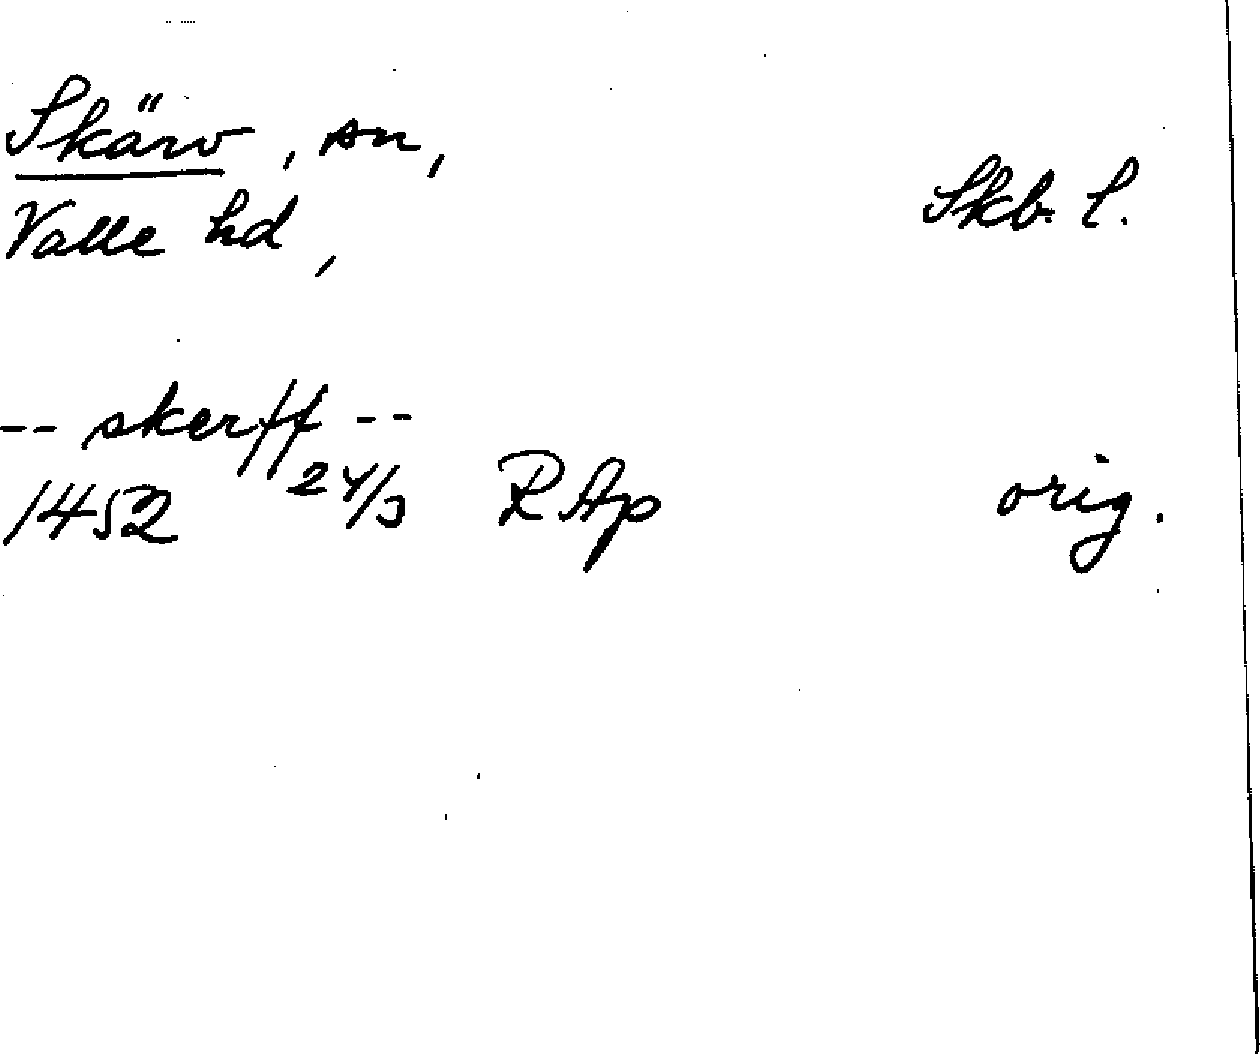 Skärv, sn,
Valle hd, Skb. l.
-- skerff --
1452 24/3 RAp orig.